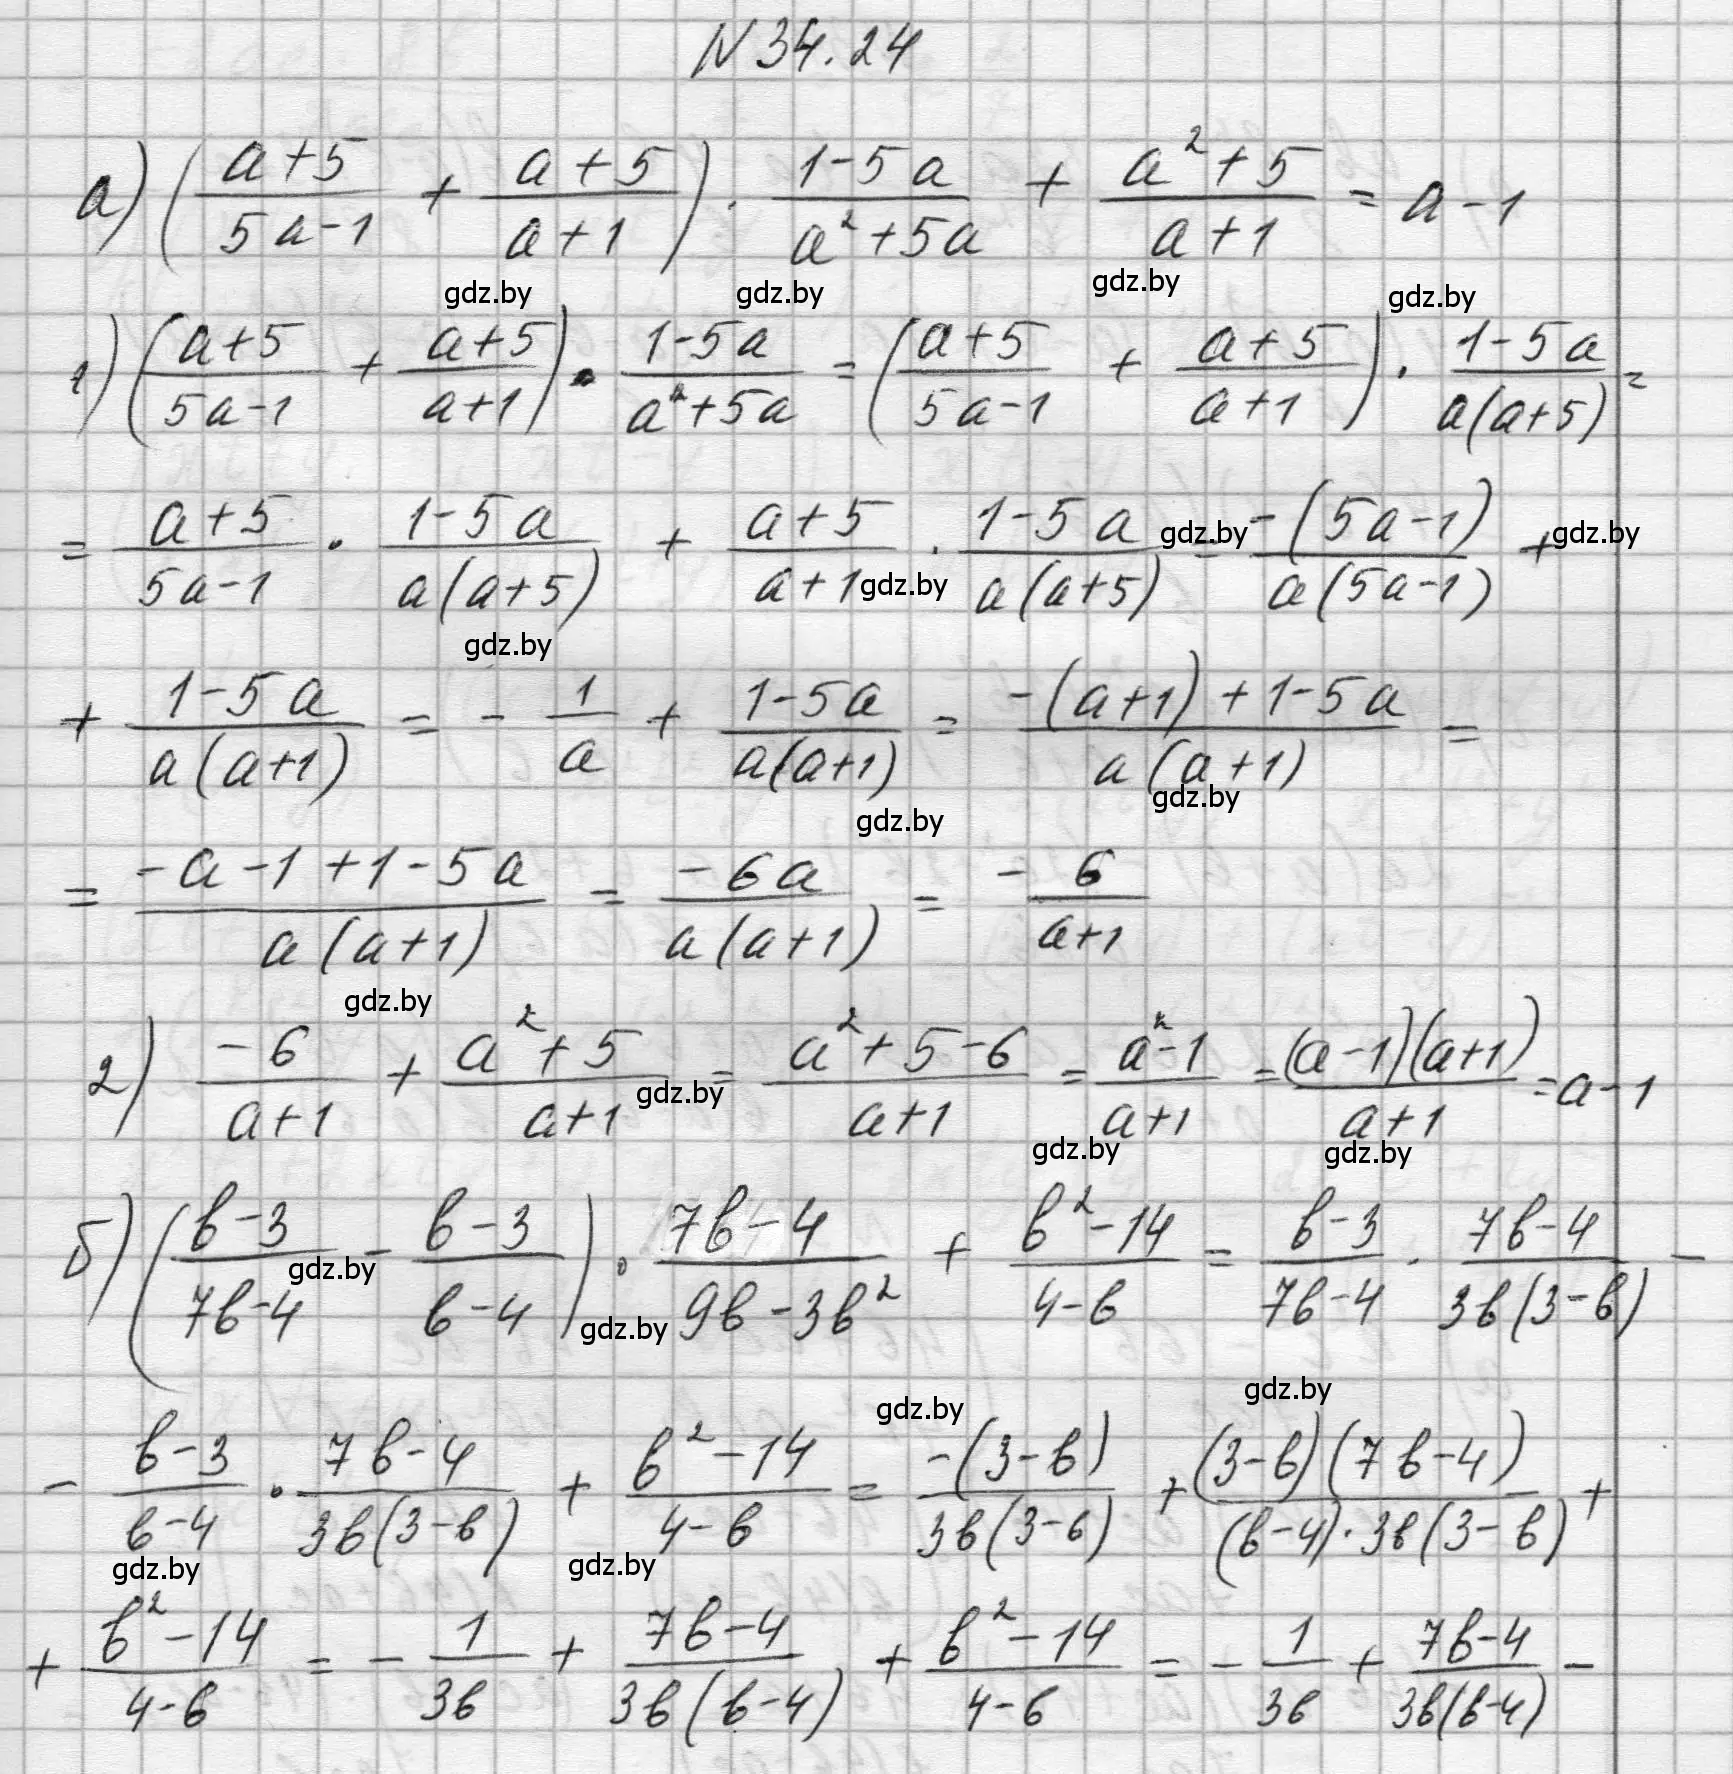 N 34.24
а) ((a+5)/(5a-1) + (a+5)/(a+1)) · (1-5a)/(a²+5a) + (a²+5)/(a+1) = a-1
gdz.by gdz.by gdz.by gdz.by
1) ((a+5)/(5a-1) + (a+5)/(a+1)) · (1-5a)/(a²+5a) = ((a+5)/(5a-1) + (a+5)/(a+1)) · (1-5a)/(a(a+5)) =
= (a+5)/(5a-1) · (1-5a)/(a(a+5)) + (a+5)/(a+1) · (1-5a)/(a(a+5)) = (-(5a-1))/(a(5a-1)) +
gdz.by gdz.by gdz.by gdz.by
+ (1-5a)/(a(a+1)) = - 1/a + (1-5a)/(a(a+1)) = (-(a+1)+1-5a)/(a(a+1)) =
gdz.by gdz.by
= (-a-1+1-5a)/(a(a+1)) = (-6a)/(a(a+1)) = - 6/(a+1)
gdz.by
2) (-6)/(a+1) + (a²+5)/(a+1) = (a²+5-6)/(a+1) = (a²-1)/(a+1) = ((a-1)(a+1))/(a+1) = a-1
gdz.by gdz.by gdz.by
б) ((b-3)/(7b-4) - (b-3)/(b-4)) · (7b-4)/(9b-3b²) + (b²-14)/(4-b) = (b-3)/(7b-4) · (7b-4)/(3b(3-b)) -
gdz.by gdz.by
gdz.by gdz.by
- (b-3)/(b-4) · (7b-4)/(3b(3-b)) + (b²-14)/(4-b) = (-(3-b))/(3b(3-b)) + ((3-b)(7b-4))/((b-4)·3b(3-b)) +
gdz.by gdz.by
+ (b²-14)/(4-b) = - 1/(3b) + (7b-4)/(3b(b-4)) + (b²-14)/(4-b) = - 1/(3b) + (7b-4)/(3b(b-4)) -